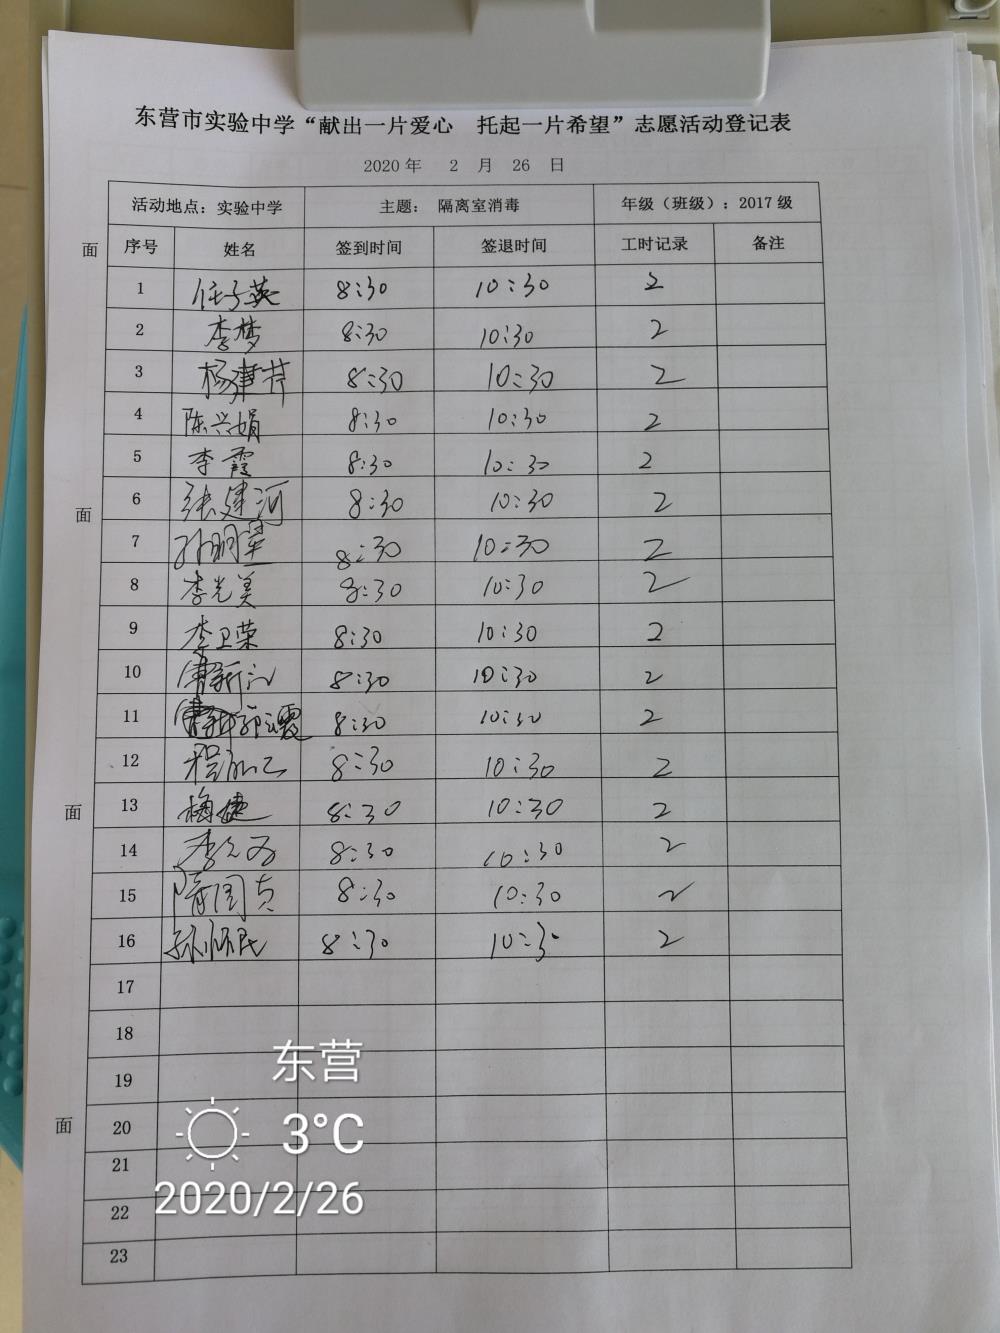 东营市实验中学“献出一片爱心 托起一片希望”志愿活动登记表
2020 年 2 月 26 日
活动地点：实验中学 主题： 隔离室消毒 年级（班级）：2017 级
面 序号 姓名 签到时间 签退时间 工时记录 备注
1 任子英 8:30 10:30 2
2 李梦 8:30 10:30 2
3 杨建芹 8:30 10:30 2
4 陈兴娟 8:30 10:30 2
5 李霞 8:30 10:30 2
面 6 张建河 8:30 10:30 2
7 孙明星 8:30 10:30 2
8 李光美 8:30 10:30 2
9 李卫荣 8:30 10:30 2
10 8:30 10:30 2
11 8:30 10:30 2
12 8:30 10:30 2
面 13 梅捷 8:30 10:30 2
14 8:30 10:30 2
15 8:30 10:30 2
16 8:30 10:30 2
17
18
19
东营
面 20
3°C
21
2020/2/26
22
23